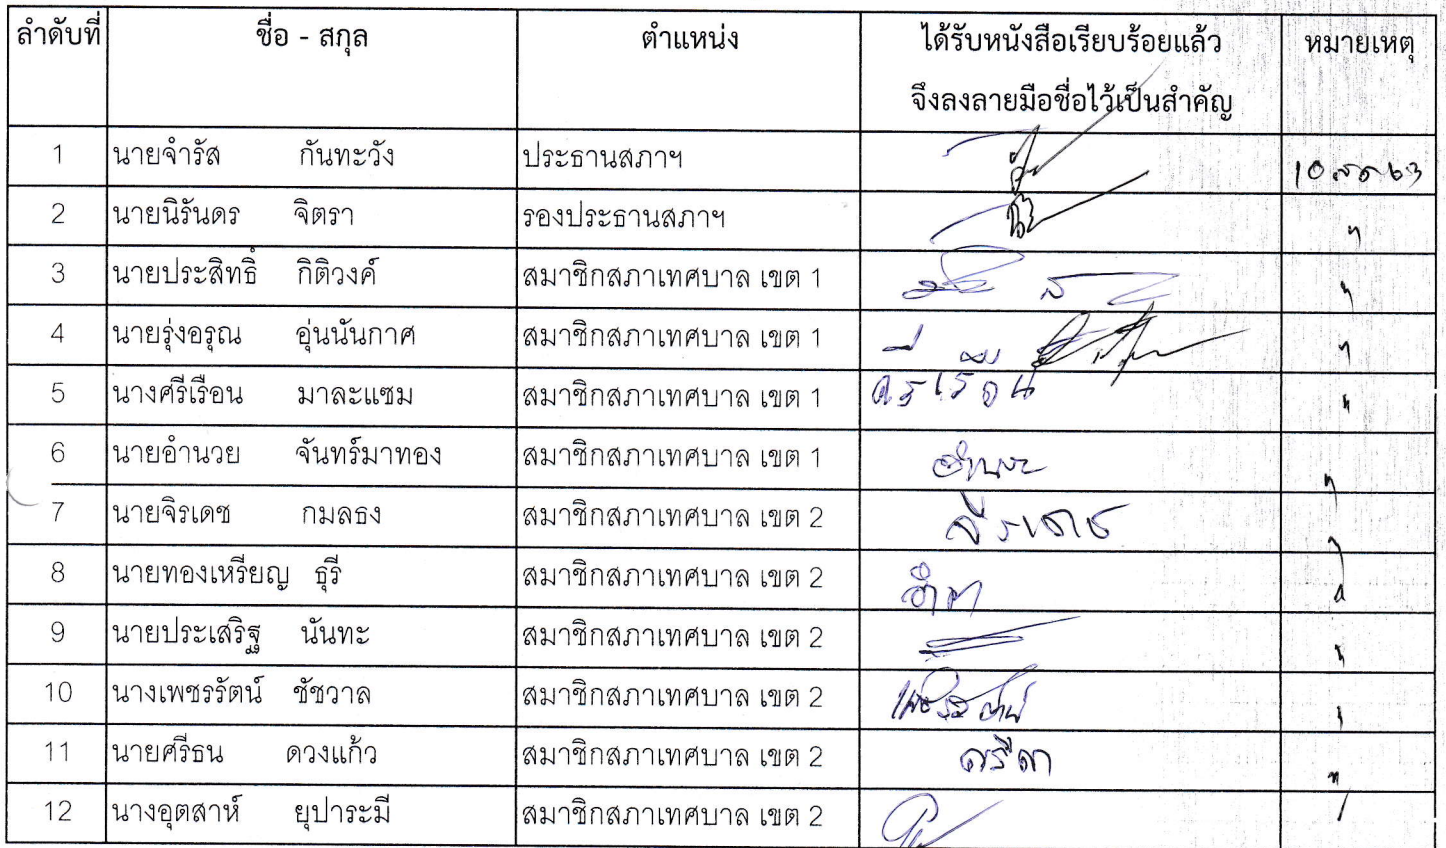 ลำดับที่ ชื่อ - สกุล ตำแหน่ง ได้รับหนังสือเรียบร้อยแล้ว หมายเหตุ
จึงลงลายมือชื่อไว้เป็นสำคัญ
1 นายจำรัส กันทะวัง ประธานสภาฯ
2 นายนิรันดร จิตรา รองประธานสภาฯ "
3 นายประสิทธิ์ กิติวงค์ สมาชิกสภาเทศบาล เขต 1 "
4 นายรุ่งอรุณ อุ่นนันกาศ สมาชิกสภาเทศบาล เขต 1 "
5 นางศรีเรือน มาละแซม สมาชิกสภาเทศบาล เขต 1 ศรีเรือน "
6 นายอำนวย จันทร์มาทอง สมาชิกสภาเทศบาล เขต 1 อำนวย "
7 นายจิรเดช กมลธง สมาชิกสภาเทศบาล เขต 2 จิรเดช
8 นายทองเหรียญ ธุรี สมาชิกสภาเทศบาล เขต 2
9 นายประเสริฐ นันทะ สมาชิกสภาเทศบาล เขต 2 "
10 นางเพชรรัตน์ ชัชวาล สมาชิกสภาเทศบาล เขต 2 เพชรรัตน์
11 นายศรีธน ดวงแก้ว สมาชิกสภาเทศบาล เขต 2 "
12 นางอุตสาห์ ยุปาระมี สมาชิกสภาเทศบาล เขต 2